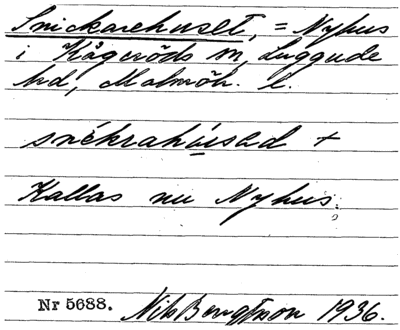 Snickarehuset, = Nyhus
i Kågeröds sn, Luggude
hd, Malmöh. l.
snékrahúsəd +
Kallas nu Nyhus.
Nr 5688. Nils Bengtsson 1936.